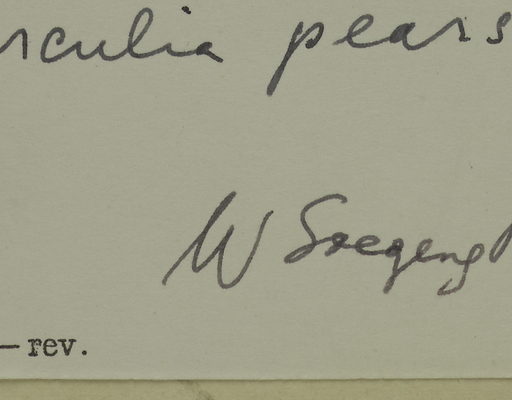 rculia pears
W Soegeng
— rev.